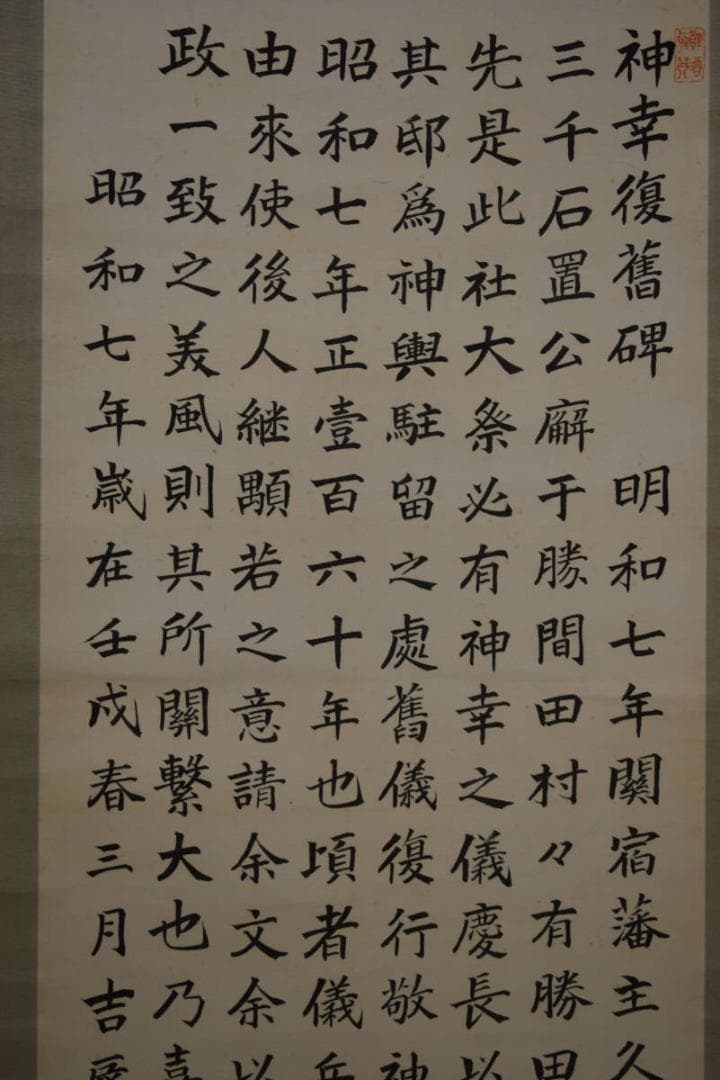 神幸復舊碑　明和七年關宿藩主久
三千石置公廨于勝間田村々有勝田
先是此社大祭必有神幸之儀慶長以
其邸爲神輿駐留之處舊儀復行敬神
昭和七年正壹百六十年也頃者儀
由來使後人継顒若之意請余文余以
政一致之美風則其所關繫大也乃喜
昭和七年歲在壬戌春三月吉